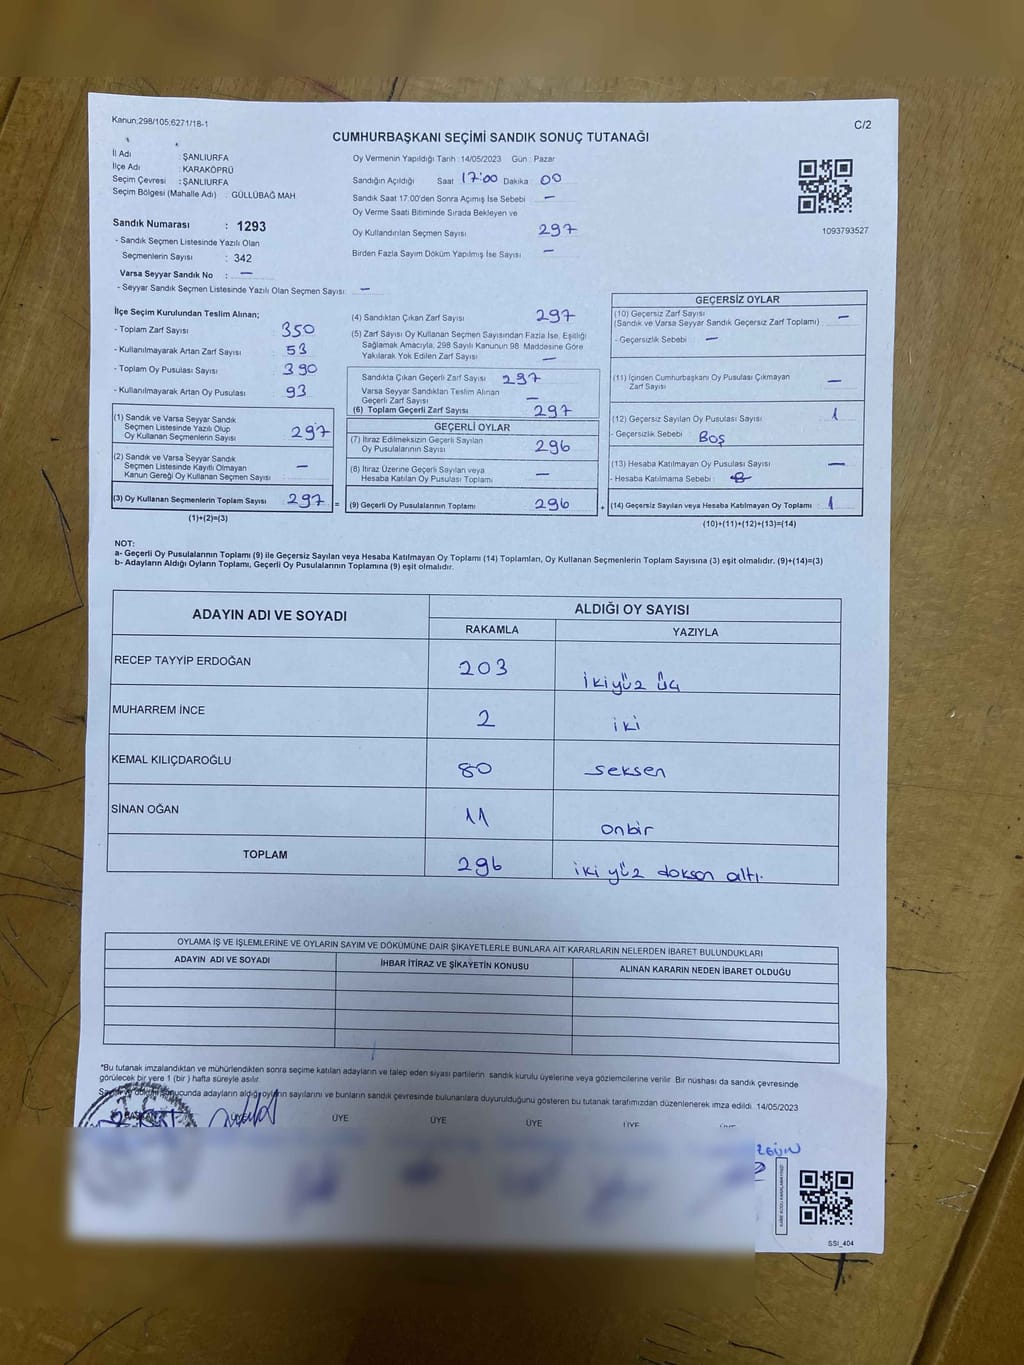 Kanun;298/105;6271/18-1
C/2
CUMHURBAŞKANI SEÇİMİ SANDIK SONUÇ TUTANAĞI
İl Adı : ŞANLIURFA
İlçe Adı : KARAKÖPRÜ
Seçim Çevresi : ŞANLIURFA
Seçim Bölgesi (Mahalle Adı) : GÜLLÜBAĞ MAH
Sandık Numarası : 1293
- Sandık Seçmen Listesinde Yazılı Olan
Seçmenlerin Sayısı : 342
Varsa Seyyar Sandık No : —
- Seyyar Sandık Seçmen Listesinde Yazılı Olan Seçmen Sayısı: —
Oy Vermenin Yapıldığı Tarih : 14/05/2023 Gün : Pazar
Sandığın Açıldığı Saat 17:00 Dakika 00
Sandık Saat 17:00'den Sonra Açımış İse Sebebi —
Oy Verme Saati Bitiminde Sırada Bekleyen ve
Oy Kullandırılan Seçmen Sayısı 297
Birden Fazla Sayım Döküm Yapılmış İse Sayısı —
1093793527
İlçe Seçim Kurulundan Teslim Alınan;
- Toplam Zarf Sayısı 350
- Kullanılmayarak Artan Zarf Sayısı 53
- Toplam Oy Pusulası Sayısı 390
- Kullanılmayarak Artan Oy Pusulası 93
(1) Sandık ve Varsa Seyyar Sandık
Seçmen Listesinde Yazılı Olup
Oy Kullanan Seçmenlerin Sayısı 297
(2) Sandık ve Varsa Seyyar Sandık
Seçmen Listesinde Kayıtlı Olmayan
Kanun Gereği Oy Kullanan Seçmen Sayısı —
(3) Oy Kullanan Seçmenlerin Toplam Sayısı 297 =
(1)+(2)=(3)
(4) Sandıktan Çıkan Zarf Sayısı 297
(5) Zarf Sayısı Oy Kullanan Seçmen Sayısından Fazla İse, Eşitliği
Sağlamak Amacıyla, 298 Sayılı Kanunun 98. Maddesine Göre
Yakılarak Yok Edilen Zarf Sayısı —
Sandıkta Çıkan Geçerli Zarf Sayısı 297
Varsa Seyyar Sandıktan Teslim Alınan
Geçerli Zarf Sayısı —
(6) Toplam Geçerli Zarf Sayısı 297
GEÇERLİ OYLAR
(7) İtiraz Edilmeksizin Geçerli Sayılan
Oy Pusulalarının Sayısı 296
(8) İtiraz Üzerine Geçerli Sayılan veya
Hesaba Katılan Oy Pusulası Toplamı —
(9) Geçerli Oy Pusulalarının Toplamı 296 +
GEÇERSİZ OYLAR
(10) Geçersiz Zarf Sayısı —
(Sandık ve Varsa Seyyar Sandık Geçersiz Zarf Toplamı)
- Geçersizlik Sebebi : —
(11) İçinden Cumhurbaşkanı Oy Pusulası Çıkmayan
Zarf Sayısı —
(12) Geçersiz Sayılan Oy Pusulası Sayısı 1
- Geçersizlik Sebebi : Boş
(13) Hesaba Katılmayan Oy Pusulası Sayısı —
- Hesaba Katılmama Sebebi :
(14) Geçersiz Sayılan veya Hesaba Katılmayan Oy Toplamı : 1
(10)+(11)+(12)+(13)=(14)
NOT:
a- Geçerli Oy Pusulalarının Toplamı (9) ile Geçersiz Sayılan veya Hesaba Katılmayan Oy Toplamı (14) Toplamları, Oy Kullanan Seçmenlerin Toplam Sayısına (3) eşit olmalıdır. (9)+(14)=(3)
b- Adayların Aldığı Oyların Toplamı, Geçerli Oy Pusulalarının Toplamına (9) eşit olmalıdır.
ADAYIN ADI VE SOYADI ALDIĞI OY SAYISI
RAKAMLA YAZIYLA
RECEP TAYYİP ERDOĞAN 203 ikiyüz üç
MUHARREM İNCE 2 iki
KEMAL KILIÇDAROĞLU 80 seksen
SİNAN OĞAN 11 onbir
TOPLAM 296 iki yüz doksan altı.
OYLAMA İŞ VE İŞLEMLERİNE VE OYLARIN SAYIM VE DÖKÜMÜNE DAİR ŞİKAYETLERLE BUNLARA AİT KARARLARIN NELERDEN İBARET BULUNDUKLARI
ADAYIN ADI VE SOYADI İHBAR İTİRAZ VE ŞİKAYETİN KONUSU ALINAN KARARIN NEDEN İBARET OLDUĞU
*Bu tutanak imzalandıktan ve mühürlendikten sonra seçime katılan adayların ve talep eden siyasi partilerin sandık kurulu üyelerine veya gözlemcilerine verilir. Bir nüshası da sandık çevresinde
görülecek bir yere 1 (bir) hafta süreyle asılır.
Sayım ve döküm sonucunda adayların aldığı oyların sayılarını ve bunların sandık çevresinde bulunanlara duyurulduğunu gösteren bu tutanak tarafımızdan düzenlenerek imza edildi. 14/05/2023
ÜYE ÜYE ÜYE ÜYE
SSİ_404